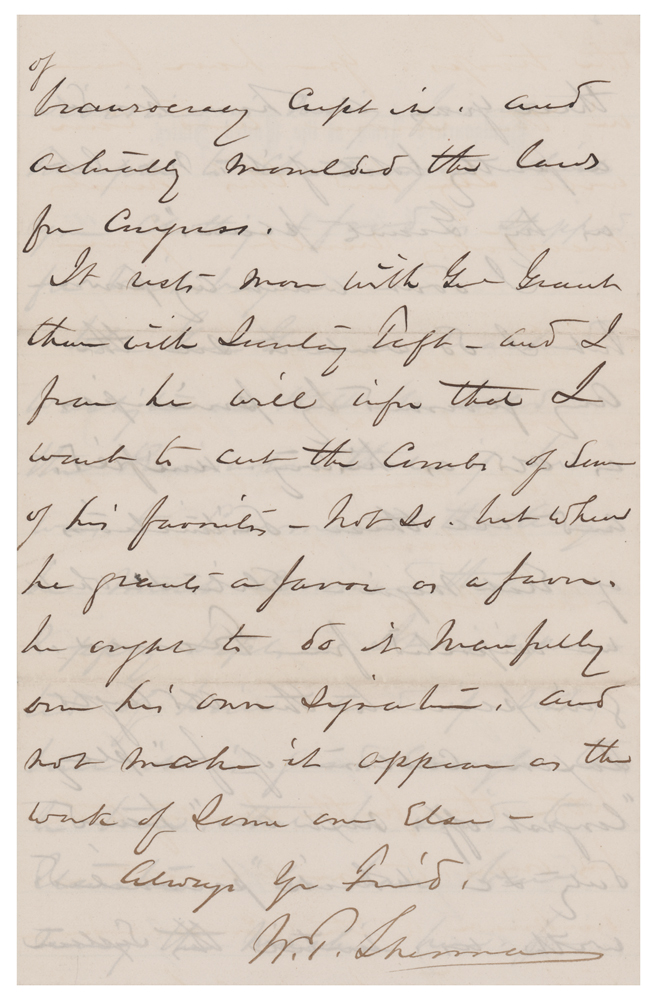 of
beaurocracy crept in. and
actually moulded the laws
for Congress.
It rests more with Gen Grant
than with Secretary Taft - and I
fear he will infer that I
want to cut the Combs of Some
of his favorites - Not so. but when
he grants a favor as a favor.
he ought to do it manfully
over his own signature, and
not make it appear as the
work of some one Else -
Always Yr Friend.
W. T. Sherman